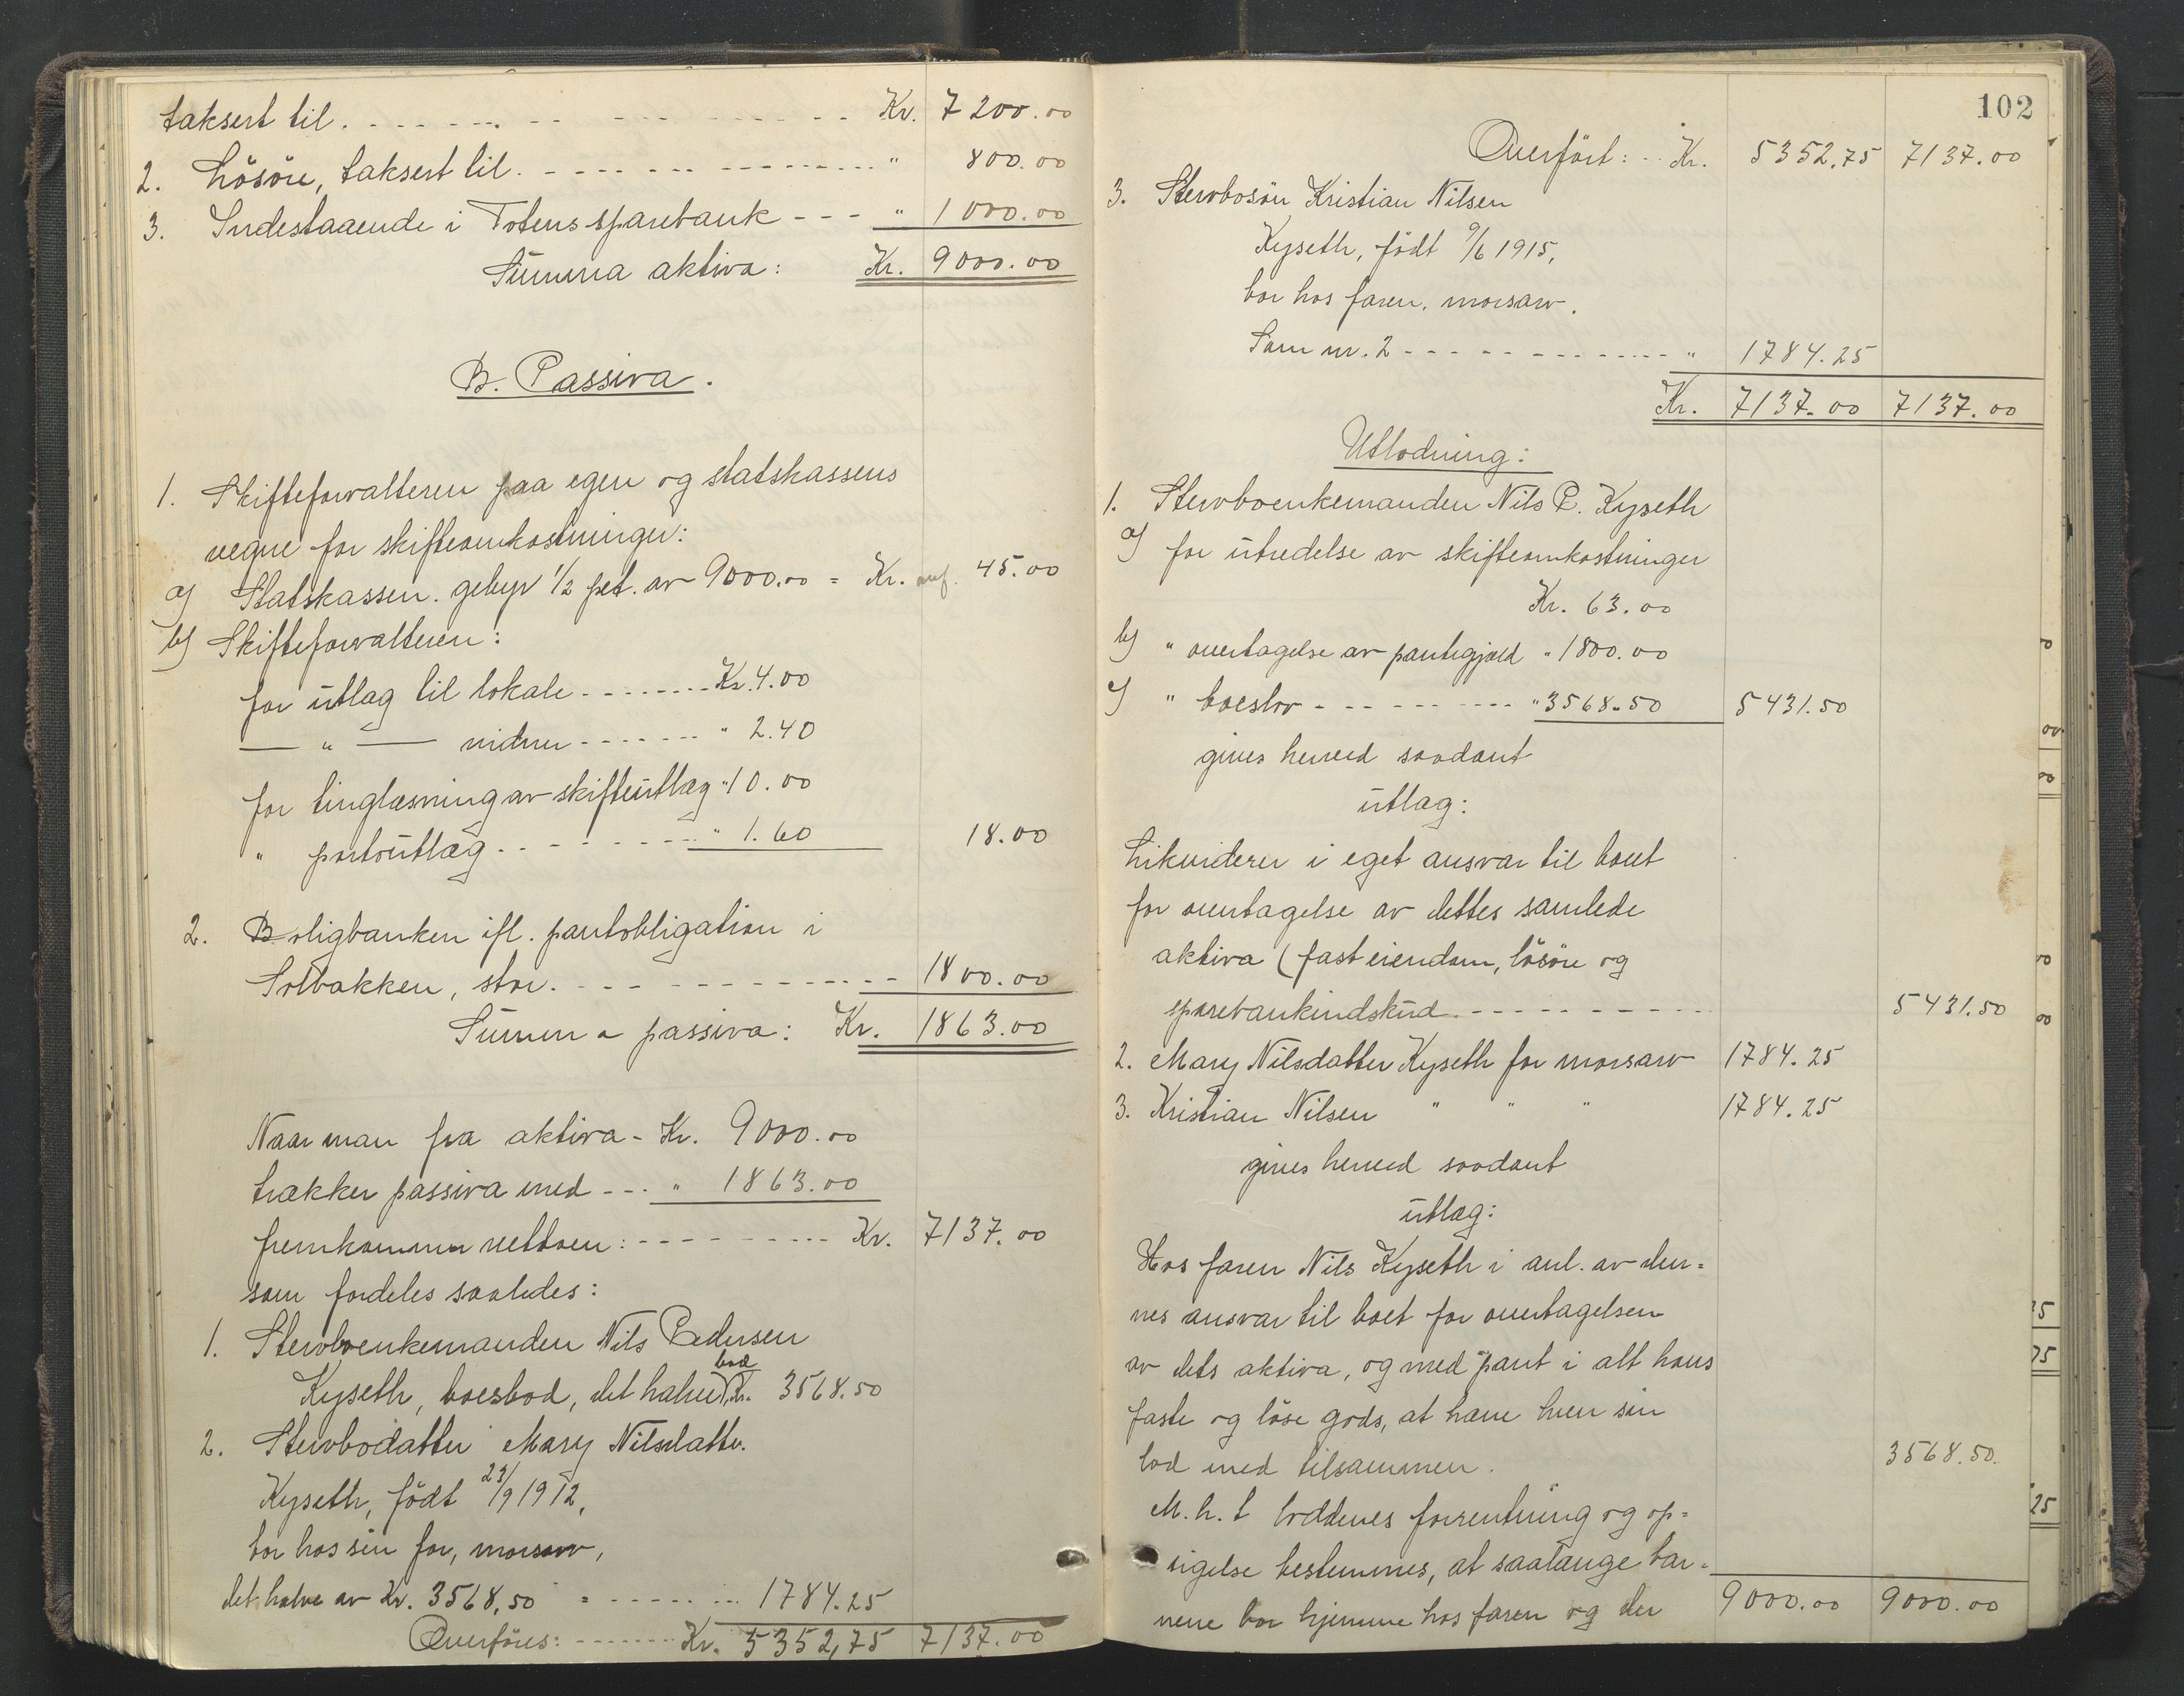 taksert til. - - - - - - - - - - - - - Kr. 7200.00
2. Lösöre, taksert til. - - - - - - - - - " 800.00
3. Indestaaende i Totens sparebank - - - " 1000.00
Summa aktiva: Kr. 9000.00
B. Passiva.
1. Skifteforvalteren paa egen og statskassens
vegne for skifteomkostninger:
a) Statskassen. gebyr 1/2 pct. av 9000.00 = Kr. 45.00
b) Skifteforvalteren:
for utlag til lokale - - - - - - - Kr. 4.00
— " — vidner - - - - - - " 2.40
for tinglæsning av skifteutlæg " 10.00
" portoutlæg - - - - - - - - " 1.60 18.00
2. Boligbanken ifl. pantobligation i
Solbakken, stor. - - - - - - - - - - - - 1800.00
Summa passiva: Kr. 1863.00
Naar man fra aktiva - Kr. 9000.00
trækker passiva med - - - " 1863.00
fremkommer nettoen: - - - - - - - - - Kr. 7137.00
som fordeles saaledes:
1. Stervboenkemanden Nils Pedersen
Kyseth, boesbod, det halve bo Kr. 3568.50
2. Stervbodatter Mary Nilsdatter
Kyseth, födt 23/9 1912,
bor hos sin far, morsarv,
det halve av Kr. 3568,50 = - - - - - - - 1784.25
Overföres: - - - - - - - Kr. 5352,75 7137.00
102
Overfört: - - Kr. 5352.75 7137.00
3. Stervbosön Kristian Nilsen
Kyseth, födt 9/6 1915,
bor hos faren, morsarv.
Som nr. 2 - - - - - - - - - - - - " 1784.25
Kr. 7137.00 7137.00
Utlodning:
1. Stervboenkemanden Nils P. Kyseth
a) for utredelse av skifteomkostninger
Kr. 63.00
b) " overtagelse av pantegjæld " 1800.00
c) " boeslov - - - - - - - - - - " 3568.50 5431.50
gives herved saadant
utlæg:
Likviderer i eget ansvar til boet
for overtagelse av dettes samlede
aktiva (fast eiendom, lösöre og
sparebankindskud. - - - - - - - - - - 5431.50
2. Mary Nilsdatter Kyseth for morsarv 1784.25
3. Kristian Nilsen " " " 1784.25
gives herved saadant
utlæg:
Hos faren Nils Kyseth i anl. av den=
nes ansvar til boet for overtagelsen
av dets aktiva, og med pant i alt hans
faste og löse gods, at have hver sin
lod med tilsammen. 3568.50.
M.h.t loddenes forrentning og op=
sigelse bestemmes, at saalænge bar=
nene bor hjemme hos faren og der 9000.00 9000.00